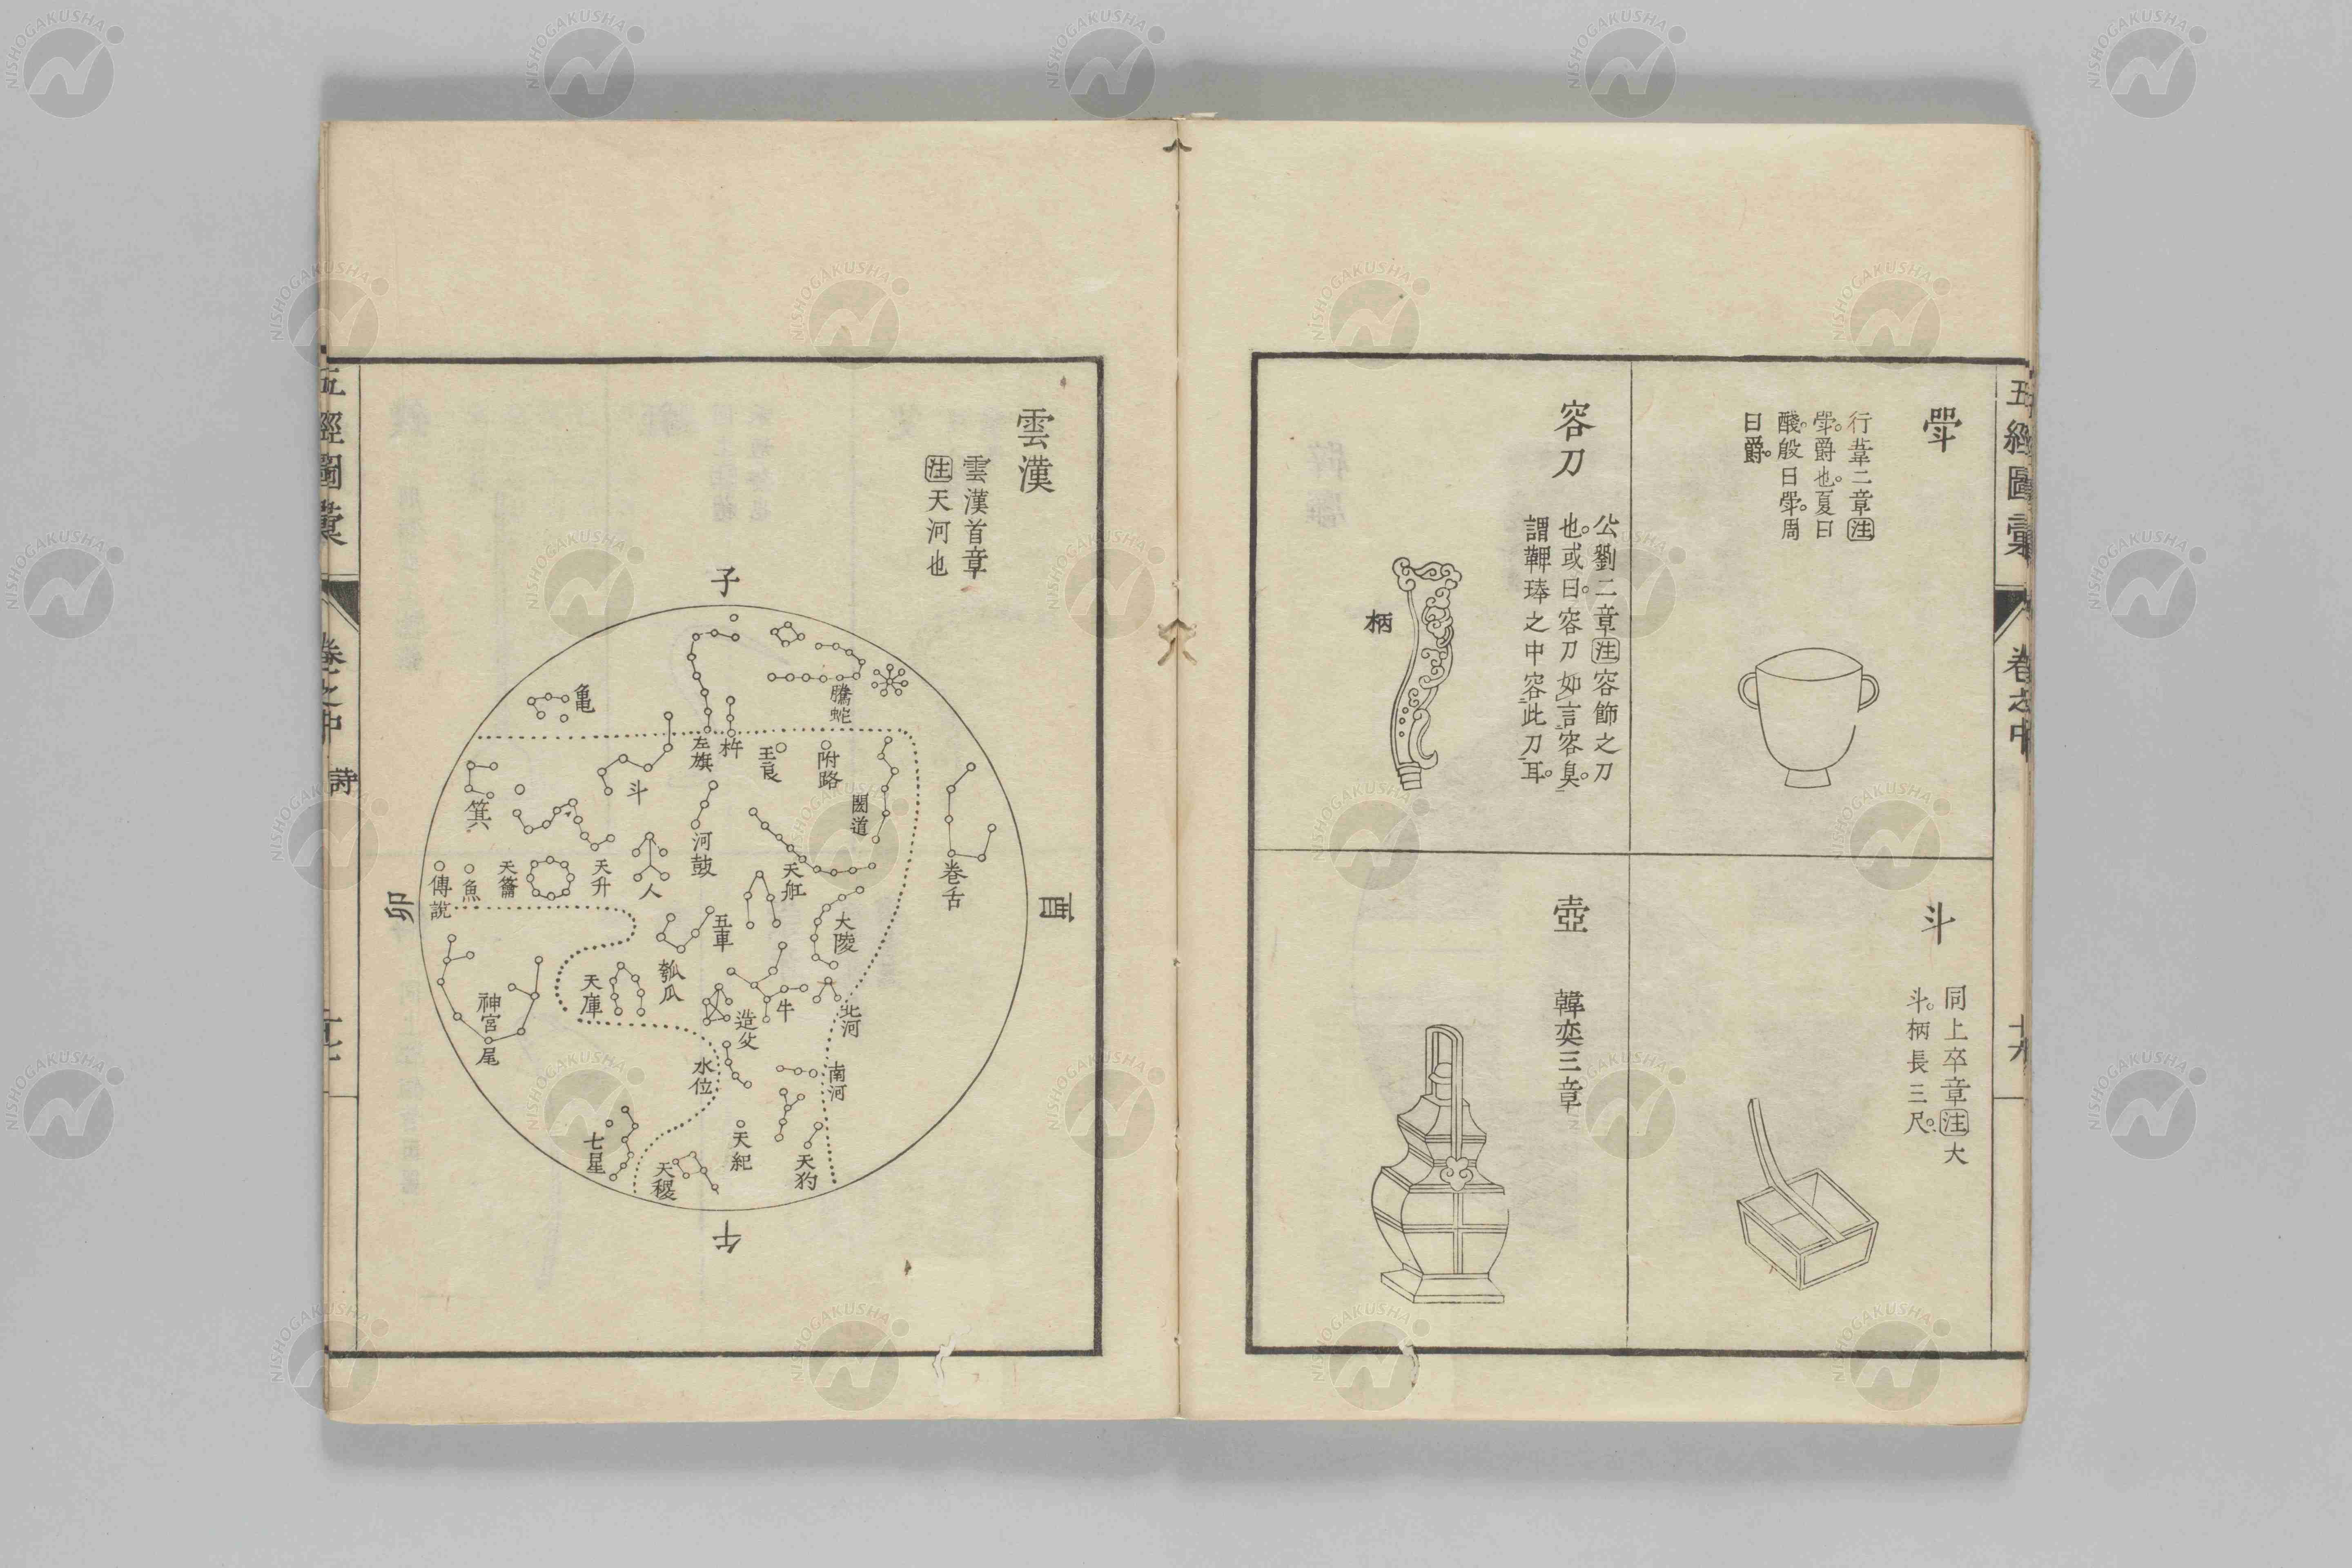 五經圖彙
卷之中
斝
行葦二章注
斝爵也夏曰
醆殷曰斝周
曰爵
斗
同上卒章注大
斗柄長三尺
容刀
公劉二章注容飾之刀
也或曰容刀如言容臭
謂鞞琫之中容此刀耳
柄
壺
韓奕三章
雲漢
雲漢首章
注天河也
子
酉
午
卯
騰蛇
亀
左旗
杵
王良
附路
閣道
斗
箕
河鼓
卷舌
天籥
天升
人
天舡
傳說
魚
大陵
五車
瓠瓜
天庫
牛
造父
北河
神宮
尾
水位
南河
七星
天紀
天稷
天狗
五經圖彙
卷之中
詩
NISHOGAKUSHA